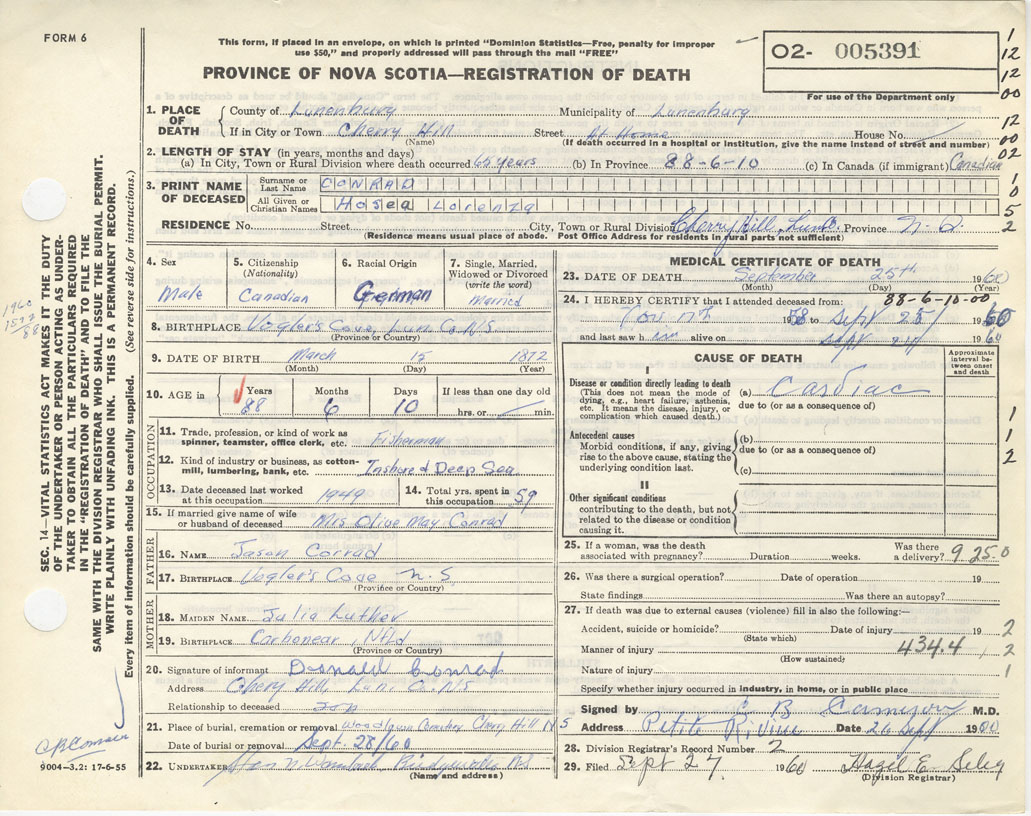 FORM 6
This form, if placed in an envelope, on which is printed "Dominion Statistics—Free, penalty for improper
use $50," and properly addressed will pass through the mail "FREE"
PROVINCE OF NOVA SCOTIA—REGISTRATION OF DEATH
02- 005391
For use of the Department only
1. PLACE OF DEATH
County of Lunenburg Municipality of Lunenburg
If in City or Town Cherry Hill Street At Home House No.
(Name) (If death occurred in a hospital or institution, give the name instead of street and number)
2. LENGTH OF STAY (in years, months and days)
(a) In City, Town or Rural Division where death occurred 65 years (b) In Province 88-6-10 (c) In Canada (if immigrant) Canadian
3. PRINT NAME OF DECEASED
Surname or Last Name CONRAD
All Given or Christian Names Hosea Lorenza
RESIDENCE No. Street City, Town or Rural Division Cherry Hill, Lun. Co. Province N.S.
(Residence means usual place of abode. Post Office Address for residents in rural parts not sufficient)
4. Sex Male
5. Citizenship (Nationality) Canadian
6. Racial Origin German
7. Single, Married, Widowed or Divorced (write the word) Married
8. BIRTHPLACE Vogler's Cove, Lun. Co. N.S.
(Province or Country)
9. DATE OF BIRTH March 15 1872
(Month) (Day) (Year)
10. AGE in Years 88 Months 6 Days 10 If less than one day old hrs. or min.
OCCUPATION
11. Trade, profession, or kind of work as spinner, teamster, office clerk, etc. Fisherman
12. Kind of industry or business, as cotton-mill, lumbering, bank, etc. Inshore & Deep Sea
13. Date deceased last worked at this occupation 1949
14. Total yrs. spent in this occupation 59
15. If married give name of wife or husband of deceased Mrs Olive May Conrad
FATHER
16. NAME Jason Conrad
17. BIRTHPLACE Vogler's Cove N.S
(Province or Country)
MOTHER
18. MAIDEN NAME Julia Luther
19. BIRTHPLACE Carbonear, Nfld
(Province or Country)
20. Signature of informant Donald Conrad
Address Cherry Hill, Lun. Co. N.S
Relationship to deceased son
21. Place of burial, cremation or removal Woodlawn Cemetery Cherry Hill N S
Date of burial or removal Sept. 28/60
22. UNDERTAKER Bridgewater NS
(Name and address)
MEDICAL CERTIFICATE OF DEATH
23. DATE OF DEATH September 25th 1960
(Month) (Day) (Year)
24. I HEREBY CERTIFY that I attended deceased from: 88-6-10-00
1958 to Sept 25/ 1960
and last saw him alive on Sept 1960
CAUSE OF DEATH
Approximate interval between onset and death
I
Disease or condition directly leading to death
(This does not mean the mode of dying, e.g., heart failure, asthenia, etc. It means the disease, injury, or complication which caused death.)
(a) Cardiac
due to (or as a consequence of)
Antecedent causes
Morbid conditions, if any, giving rise to the above cause, stating the underlying condition last.
(b)
due to (or as a consequence of)
(c)
II
Other significant conditions
contributing to the death, but not related to the disease or condition causing it.
25. If a woman, was the death associated with pregnancy? Duration weeks. Was there a delivery? 9 25 0
26. Was there a surgical operation? Date of operation 19
State findings Was there an autopsy?
27. If death was due to external causes (violence) fill in also the following:—
Accident, suicide or homicide? Date of injury 19
(State which)
Manner of injury 434.4
(How sustained)
Nature of injury
Specify whether injury occurred in industry, in home, or in public place
Signed by C B Cameron M.D.
Address Petite Riviere Date 26 Sept 1960
28. Division Registrar's Record Number 2
29. Filed Sept 27 1960 Hazel E
(Division Registrar)
1
12
12
00
12
00
02
1
0
5
2
1
1
2
2
2
1
SEC. 14—VITAL STATISTICS ACT MAKES IT THE DUTY
OF THE UNDERTAKER OR PERSON ACTING AS UNDER-
TAKER TO OBTAIN ALL THE PARTICULARS REQUIRED
IN THE "REGISTRATION OF DEATH" AND TO FILE THE
SAME WITH THE DIVISION REGISTRAR WHO SHALL ISSUE THE BURIAL PERMIT.
WRITE PLAINLY WITH UNFADING INK. THIS IS A PERMANENT RECORD.
Every item of information should be carefully supplied. (See reverse side for instructions.)
1960
1872
88
9004-3.2: 17-6-55